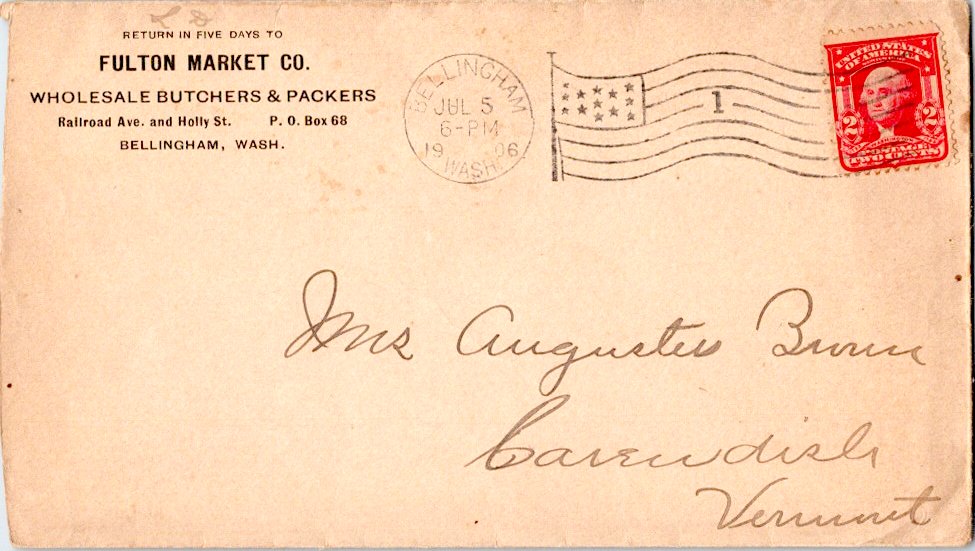 RETURN IN FIVE DAYS TO
FULTON MARKET CO.
WHOLESALE BUTCHERS & PACKERS
Railroad Ave. and Holly St. P. O. Box 68
BELLINGHAM, WASH.
BELLINGHAM
JUL 5
6-PM
1906
WASH.
1
UNITED STATES
OF AMERICA
2 2
POSTAGE
TWO CENTS
Mrs Augustus Brown
Cavendish
Vermont